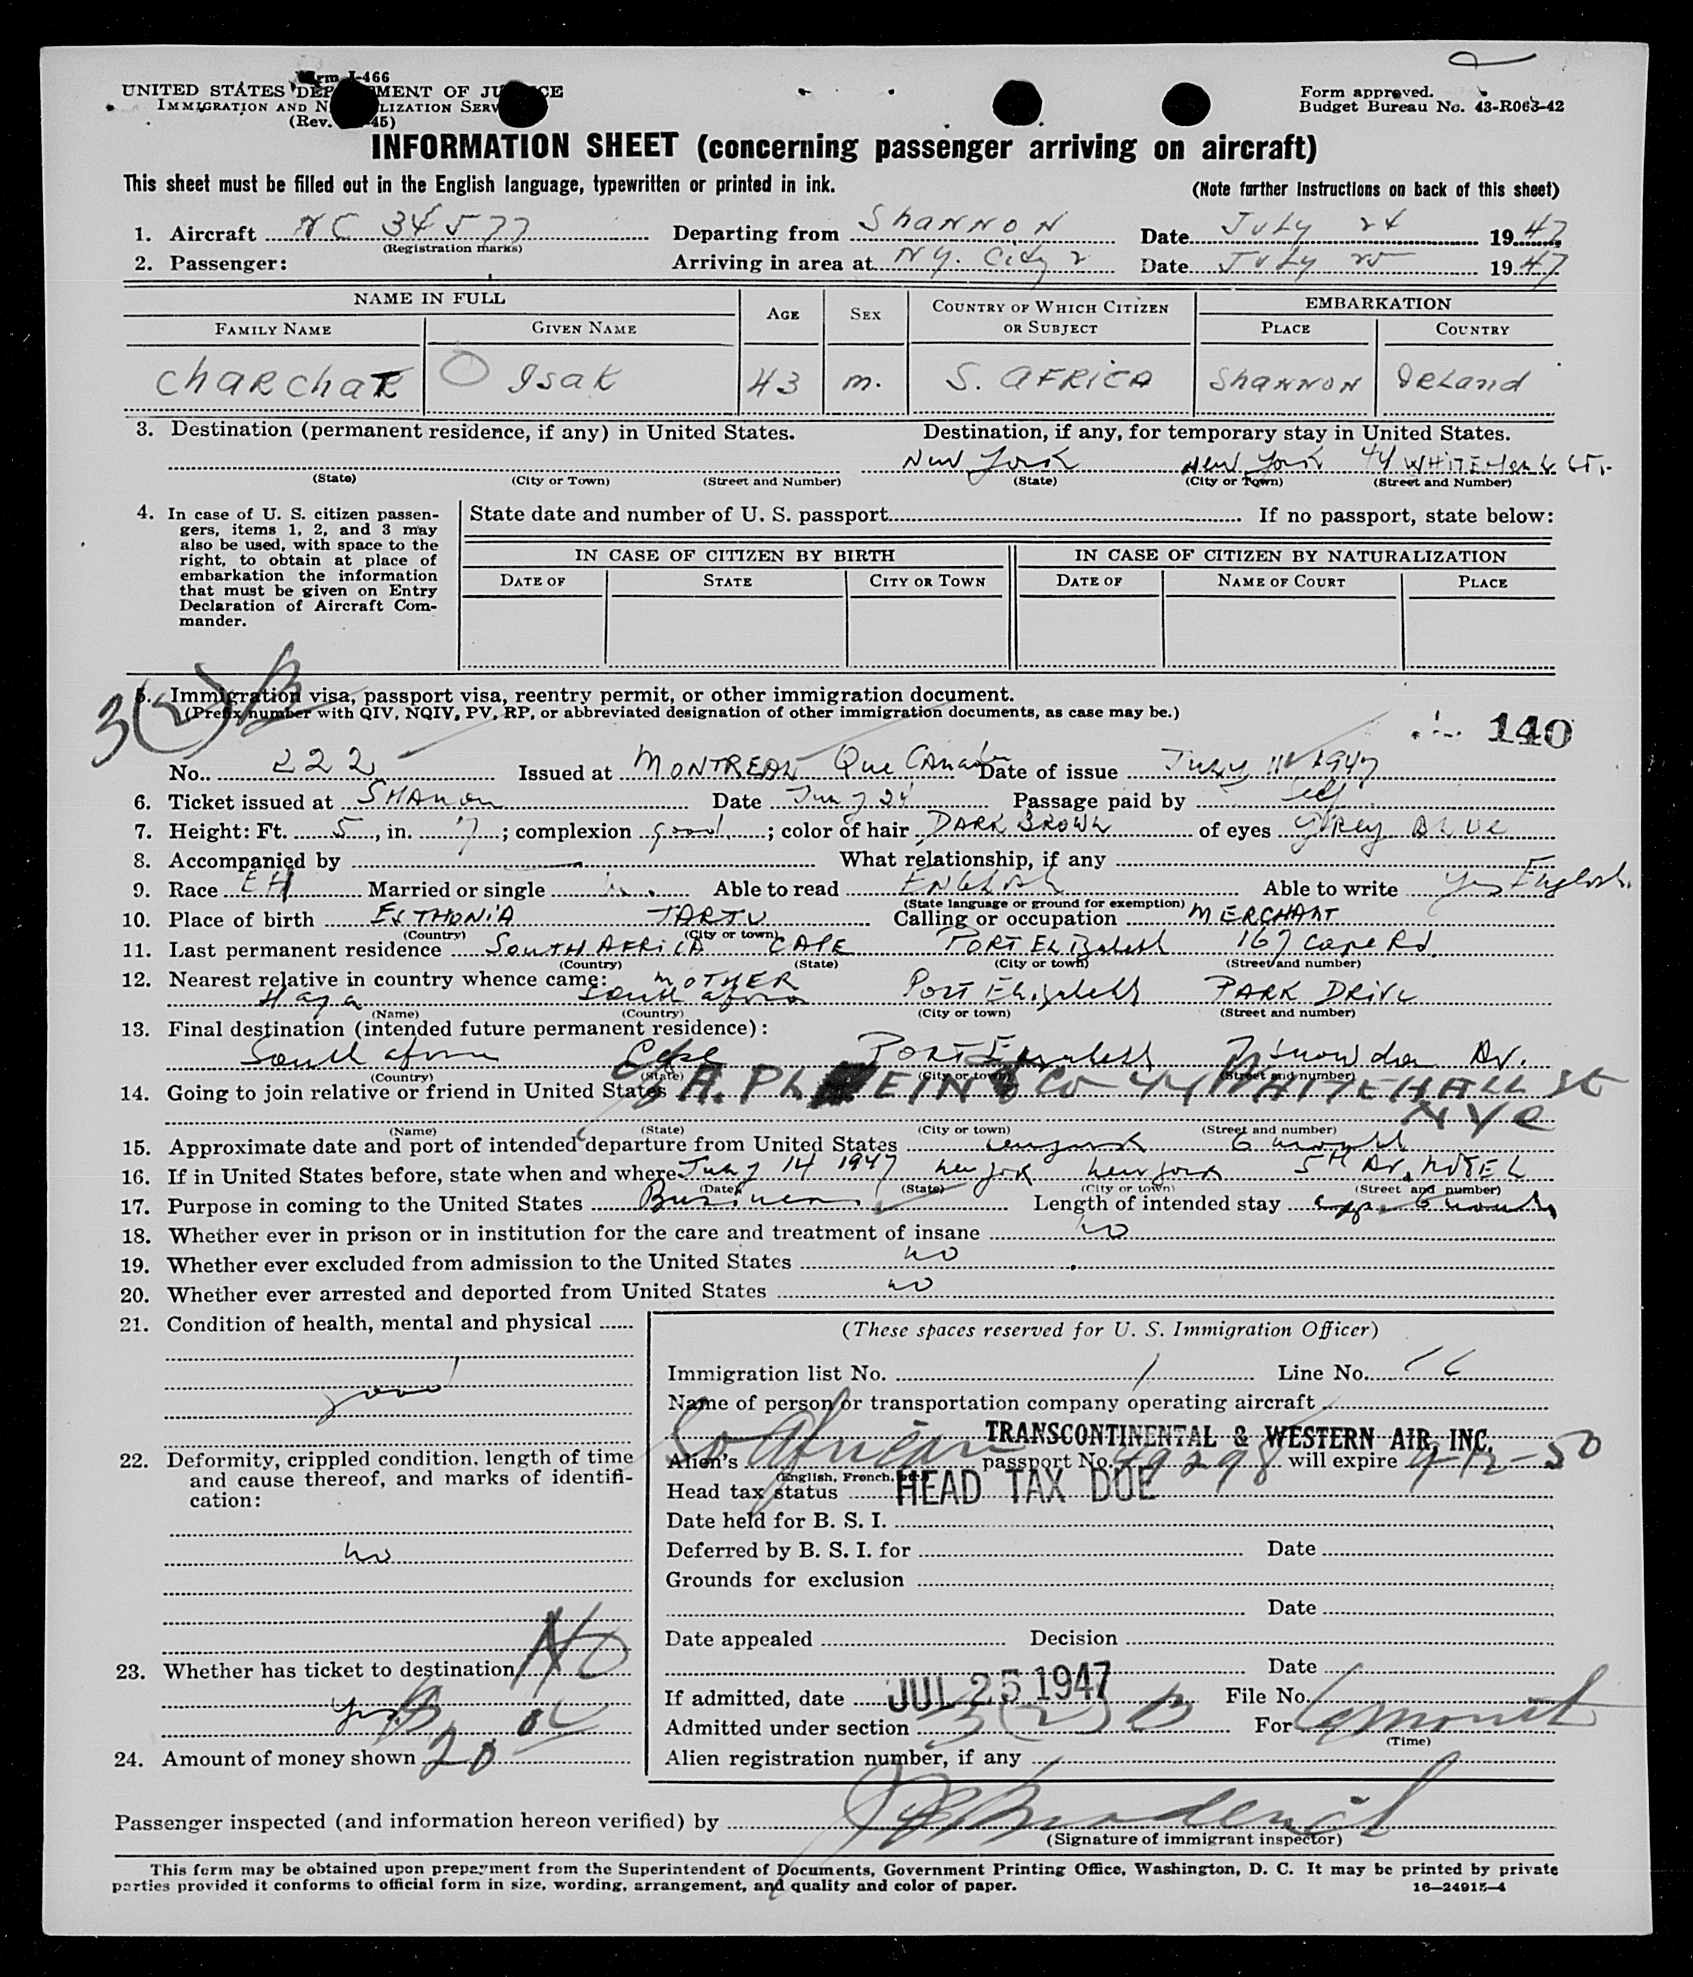 Form I-466
UNITED STATES DEPARTMENT OF JUSTICE
IMMIGRATION AND NATURALIZATION SERV
(Rev. 45)
Form approved.
Budget Bureau No. 43-R063-42
INFORMATION SHEET (concerning passenger arriving on aircraft)
This sheet must be filled out in the English language, typewritten or printed in ink.
(Note further instructions on back of this sheet)
1. Aircraft NC 34577 Departing from Shannon Date July 24 1947
(Registration marks)
2. Passenger: Arriving in area at N.Y. City 2 Date July 25 1947
NAME IN FULL AGE SEX COUNTRY OF WHICH CITIZEN OR SUBJECT EMBARKATION
FAMILY NAME GIVEN NAME PLACE COUNTRY
CHARCHAR Isak 43 m. S. AFRICA SHANNON IRELAND
3. Destination (permanent residence, if any) in United States. Destination, if any, for temporary stay in United States.
New York New York 44 WHITEHALL ST.
(State) (City or Town) (Street and Number) (State) (City or Town) (Street and Number)
4. In case of U. S. citizen passen-
gers, items 1, 2, and 3 may
also be used, with space to the
right, to obtain at place of
embarkation the information
that must be given on Entry
Declaration of Aircraft Com-
mander.
State date and number of U. S. passport If no passport, state below:
IN CASE OF CITIZEN BY BIRTH IN CASE OF CITIZEN BY NATURALIZATION
DATE OF STATE CITY OR TOWN DATE OF NAME OF COURT PLACE
3(2)B
5. Immigration visa, passport visa, reentry permit, or other immigration document.
(Prefix number with QIV, NQIV, PV, RP, or abbreviated designation of other immigration documents, as case may be.)
140
No. 222 Issued at MONTREAL Que Canada Date of issue July 11 1947
6. Ticket issued at SHANON Date July 24 Passage paid by self
7. Height: Ft. 5, in. 7; complexion good; color of hair DARK BROWN of eyes Grey BLUE
8. Accompanied by What relationship, if any
9. Race EH Married or single Able to read ENGLISH Able to write Yes English
(State language or ground for exemption)
10. Place of birth ESTHONIA TARTU Calling or occupation MERCHANT
(Country) (City or town)
11. Last permanent residence SOUTH AFRICA CAPE PORT Elizabeth 167 Cape Rd
(Country) (State) (City or town) (Street and number)
12. Nearest relative in country whence came: MOTHER
Haya South Africa Port Elizabeth PARK DRIVE
(Name) (Country) (City or town) (Street and number)
13. Final destination (intended future permanent residence):
South Africa Cape PORT Elizabeth 7 Snowdon Av.
(Country) (State) (City or town) (Street and number)
14. Going to join relative or friend in United States & CO 44 WHITEHALL St
NYC
(Name) (State) (City or town) (Street and number)
15. Approximate date and port of intended departure from United States New York 6 months
16. If in United States before, state when and where July 14 1947 New York New York 5th Av. HOTEL
(Date) (State) (City or town) (Street and number)
17. Purpose in coming to the United States Business Length of intended stay 6 months
18. Whether ever in prison or in institution for the care and treatment of insane no
19. Whether ever excluded from admission to the United States no
20. Whether ever arrested and deported from United States no
21. Condition of health, mental and physical
good
22. Deformity, crippled condition, length of time
and cause thereof, and marks of identifi-
cation:
no
23. Whether has ticket to destination NO
Yes
24. Amount of money shown 20
(These spaces reserved for U. S. Immigration Officer)
Immigration list No. 1 Line No. 16
Name of person or transportation company operating aircraft
TRANSCONTINENTAL & WESTERN AIR, INC.
Alien's So African passport No. 49298 will expire 9-12-50
(English, French, etc.)
Head tax status HEAD TAX DUE
Date held for B. S. I.
Deferred by B. S. I. for Date
Grounds for exclusion
Date
Date appealed Decision
Date
If admitted, date JUL 25 1947 File No.
Admitted under section 3(2)B For 6 months
(Time)
Alien registration number, if any
Passenger inspected (and information hereon verified) by
(Signature of immigrant inspector)
This form may be obtained upon prepayment from the Superintendent of Documents, Government Printing Office, Washington, D. C. It may be printed by private
parties provided it conforms to official form in size, wording, arrangement, and quality and color of paper.
16—24915-4